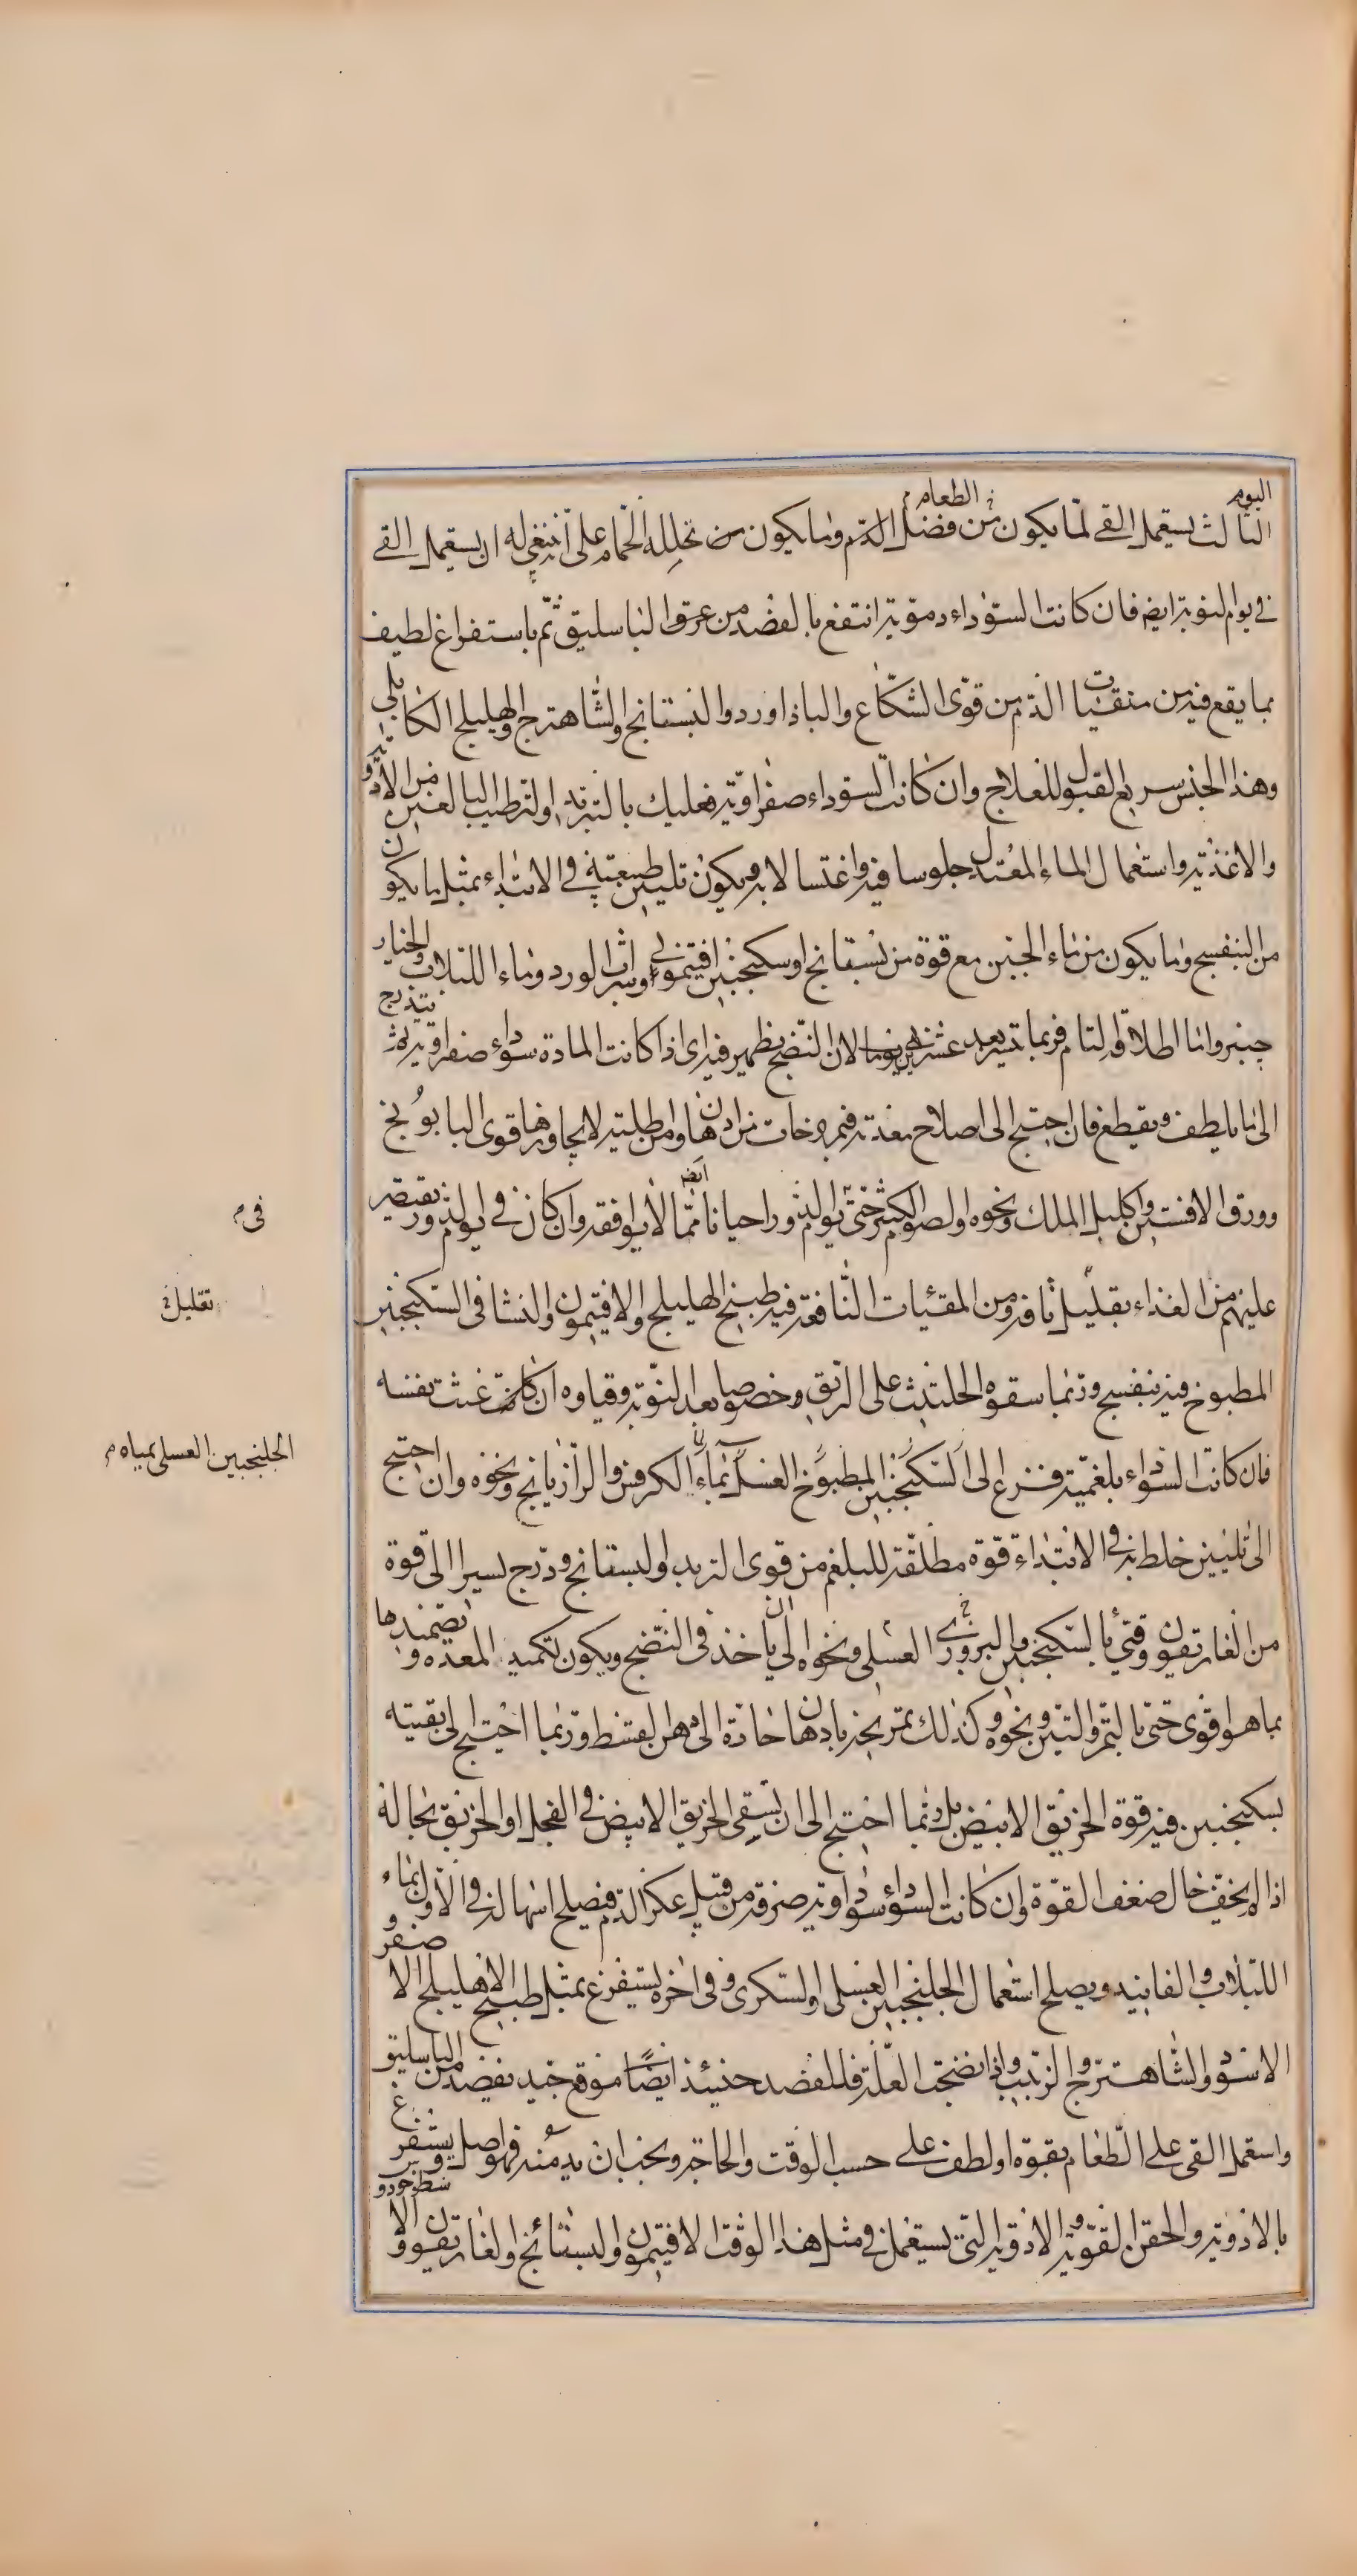 اليوم
الثالث يستعمل القئ لما يكون من فضل الدم وما يكون من تحليله الحمام على انه ينبغى له ان يستعمل القئ
الطعام
فى يوم النوبة ايضا فان كانت السوداء دموية انتفع بالفصد من عرق الباسليق ثم باستفراغ لطيف
بما يقع فيه من منقيات الدم من قوى الشكاع والباذاورد والبستانج والشاهترج والهليلج الكابلى
وهذا الجنس سريع القبول للعلاج وان كانت السوداء صفراوية فعليك بالتبريد والترطيب البالغين من الادوية
والاغذية واستعمال الماء المعتدل جلوسا فيه واغتسالا به ويكون تليين طبيعته فى الابتداء بمثل ما يكون
من البنفسج وما يكون من ماء الجبن مع قوة من بسقانج او سكنجبين افتيمونى او شراب الورد وماء اللبلاب والخيار
جنبر واما اطلاقه التام فربما تيسر بعد عشرين يوما لان النضج يظهر فيه اى اذا كانت المادة سوداء صفراوية ثم يتدرج
الى ما يلطف ويقطع فان احتيج الى اصلاح معدته فبمروخات من ادهان ومن اطلية لا يجاوزها قوى البابونج
وورق الافسنتين واكليل الملك ونحوه والصوم الكثير حتى يوم الدور احيانا ايضا مما لا يوافقه وان كان فى يوم الدور تقتصر
عليهم من الغذاء بقليل نافه ومن المقيئات النافعة فيه طبيخ الهليلج والافتيمون والنشا فى السكنجبين
المطبوخ فيه بنفسج وربما سقوه الحلتيث على الريق وخصوصا بعد النوبة وقياوه ان كانت غثت نفسه
فان كانت السوداء بلغمية فزع الى السكنجبين المطبوخ العسل بماء الكرفس والرازيانج ونحوه وان احتيج
الى تليين خلط به فى الابتداء قوة مطلقة للبلغم من قوى التربد والبسقانج ودرج يسيرا الى قوة
من الغاريقون وقيئ بالسكنجبين والبزورى العسلى ونحوه الى ان ياخذ فى النضج ويكون تكميد المعدة وتضميدها
بما هو اقوى حتى بالتمر والتين ونحوه وكذلك تمريخه بادهان حادة الى دهن القسط وربما احتيج الى بقيته
بسكنجبين فيه قوة الخربق الابيض بل وربما احتيج الى ان يسقى الخربق الابيض فى الفجل او الخربق بحاله
اذا لم يخف حال ضعف القوة وان كانت السوداء سوداوية صرفة من قبل عكر الدم فيصلح اسهاله فى الاول بماء
اللبلاب والفانيد ويصلح استعمال الجلنجبين العسلى والسكرى وفى اخره يستفرغ بمثل طبيخ الاهليلج الاصفر و
الاسود والشاهترج والزبيب واذا نضجت العلة فللفصد حينئذ ايضا موقع جيد يفصد من الباسليق
واستعمل القئ على الطعام بقوة او لطف على حسب الوقت والحاجة ويجب ان يدمنه فهو اصل ويستفرغ
بالادوية والحقن القوية والادوية التى يستعمل فى مثل هذا الوقت الافتيمون والبسقائج والغاريقون والاسطوخودو
فى م
تقليل خ
الجلنجبين العسلى بمياه م